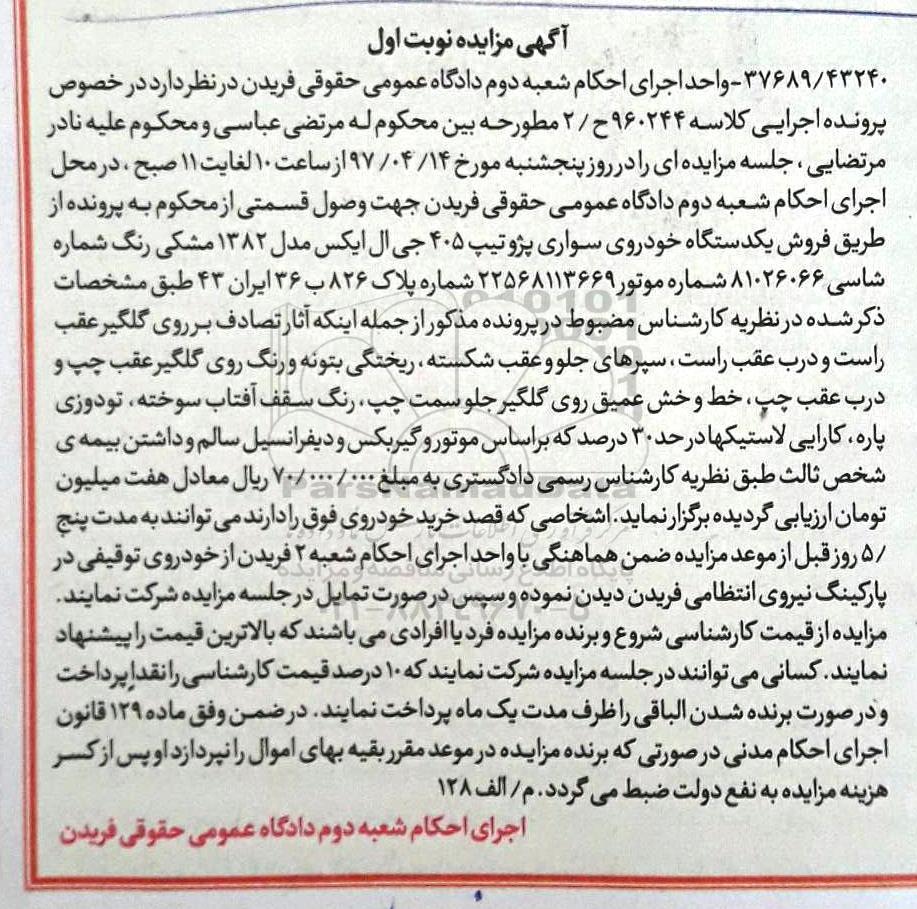 آگهی مزایده نوبت اول
۳۷۶۸۹/۴۳۲۴۰-واحد اجرای احکام شعبه دوم دادگاه عمومی حقوقی فریدن در نظر دارد در خصوص
پرونده اجرایی کلاسه ۹۶۰۲۴۴ ح /۲ مطروحه بین محکوم له مرتضی عباسی و محکوم علیه نادر
مرتضایی ، جلسه مزایده ای را در روز پنجشنبه مورخ ۹۷/۰۴/۱۴ از ساعت ۱۰ لغایت ۱۱ صبح ، در محل
اجرای احکام شعبه دوم دادگاه عمومی حقوقی فریدن جهت وصول قسمتی از محکوم به پرونده از
طریق فروش یکدستگاه خودروی سواری پژو تیپ ۴۰۵ جی ال ایکس مدل ۱۳۸۲ مشکی رنگ شماره
شاسی ۸۱۰۲۶۰۶۶ شماره موتور ۲۲۵۶۸۱۱۳۶۶۹ شماره پلاک ۸۲۶ ب ۳۶ ایران ۴۳ طبق مشخصات
ذکر شده در نظریه کارشناس مضبوط در پرونده مذکور از جمله اینکه آثار تصادف بر روی گلگیر عقب
راست و درب عقب راست ، سپرهای جلو و عقب شکسته ، ریختگی بتونه و رنگ روی گلگیر عقب چپ و
درب عقب چپ ، خط و خش عمیق روی گلگیر جلو سمت چپ ، رنگ سقف آفتاب سوخته ، تودوزی
پاره ، کارایی لاستیکها در حد ۳۰ درصد که براساس موتور و گیربکس و دیفرانسیل سالم و داشتن بیمه ی
شخص ثالث طبق نظریه کارشناس رسمی دادگستری به مبلغ ۷۰/۰۰۰/۰۰۰ ریال معادل هفت میلیون
تومان ارزیابی گردیده برگزار نماید. اشخاصی که قصد خرید خودروی فوق را دارند می توانند به مدت پنج
/۵ روز قبل از موعد مزایده ضمن هماهنگی با واحد اجرای احکام شعبه ۲ فریدن از خودروی توقیفی در
پارکینگ نیروی انتظامی فریدن دیدن نموده و سپس در صورت تمایل در جلسه مزایده شرکت نمایند.
مزایده از قیمت کارشناسی شروع و برنده مزایده فرد یا افرادی می باشند که بالاترین قیمت را پیشنهاد
نمایند. کسانی می توانند در جلسه مزایده شرکت نمایند که ۱۰ درصد قیمت کارشناسی را نقدا پرداخت
و در صورت برنده شدن الباقی را ظرف مدت یک ماه پرداخت نمایند. در ضمن وفق ماده ۱۲۹ قانون
اجرای احکام مدنی در صورتی که برنده مزایده در موعد مقرر بقیه بهای اموال را نپردازد او پس از کسر
هزینه مزایده به نفع دولت ضبط می گردد. م/ الف ۱۲۸
اجرای احکام شعبه دوم دادگاه عمومی حقوقی فریدن
ParsNamadData
پایگاه اطلاع رسانی مناقصه و مزایده